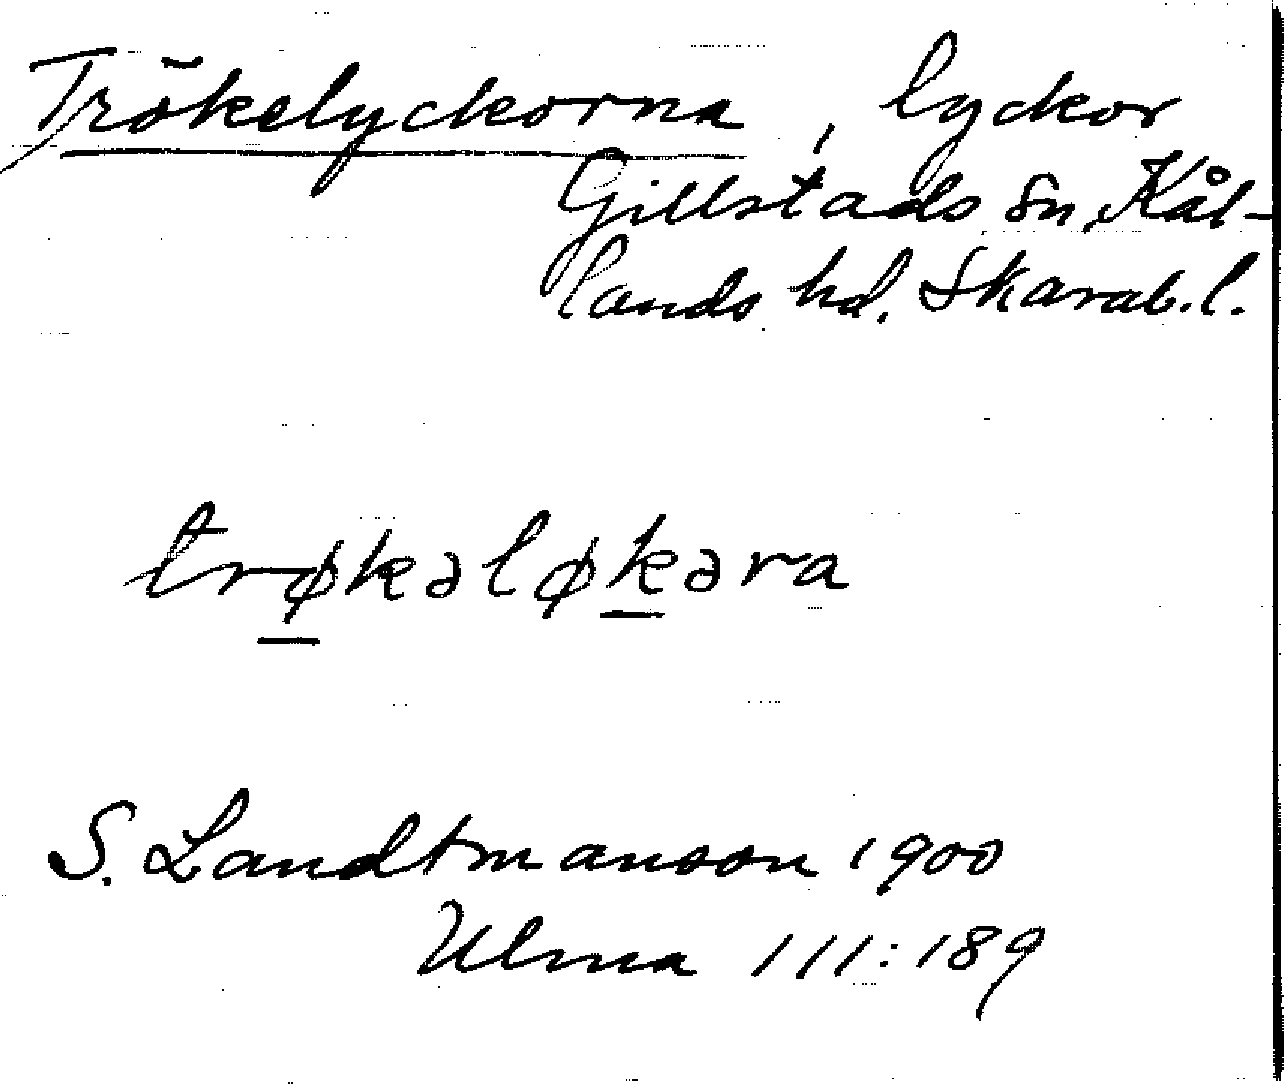 Trökelyckorna, lyckor
Gillstads sn, Kål-
lands hd. Skarab. l.
trøkəløkəra
S. Landtmanson 1900
Ulma 111:189